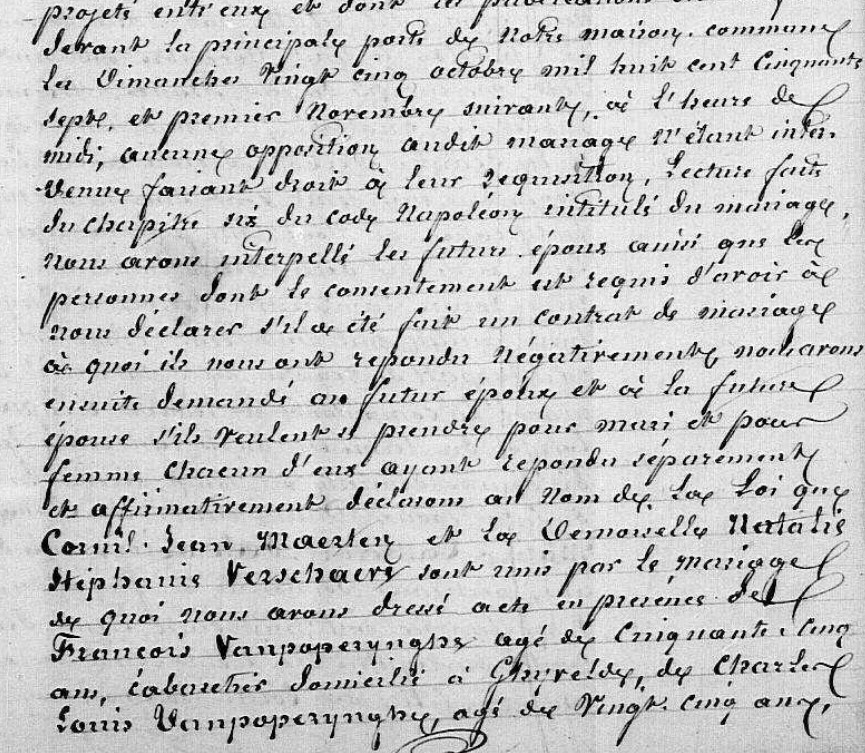 projeté entr'eux et dont les publications
devant la principale porte de notre maison commune
les Dimanches Vingt cinq octobre mil huit cent Cinquante
sept, et premier Novembre suivant, à l'heure de
midi, aucune opposition audit mariage N'étant inter-
venue faisant droit à leur requisition, Lecture faite
du chapitre six du code Napoléon intitulé du mariage,
nous avons interpellé les futurs époux ainsi que les
personnes dont le consentement est requis d'avoir à
nous déclarer s'il a été fait un contrat de mariage
à quoi ils nous ont repondu Négativement, nous avons
ensuite demandé au futur époux et à la future
épouse s'ils veulent se prendre pour mari et pour
femme chacun d'eux ayant repondu séparement
et affirmativement déclarons au Nom de La Loi que
Cornil Jean Maerten et La Demoiselle Natalie
Stéphanie Verschaeve sont unis par le Mariage
de quoi nous avons dressé acte en présence de
François Vanpoperynghe agé de Cinquante-cinq
ans, Cabaretier domicilié à Ghyvelde, de Charles
Louis Vanpoperynghe, agé de Vingt-cinq ans,